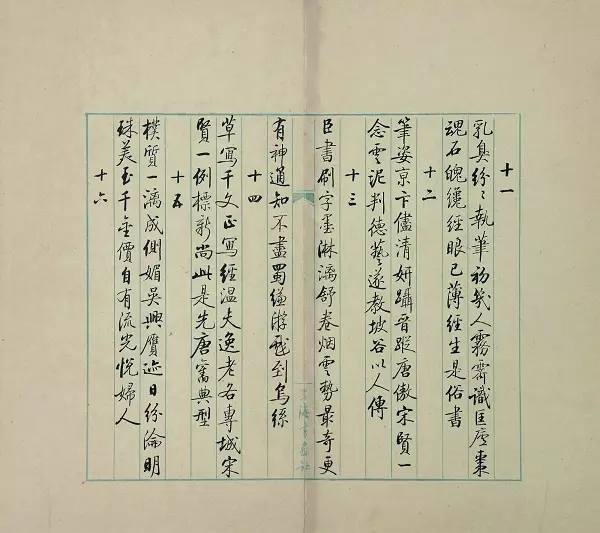 十一
乳臭紛〻執筆初幾人霧霽識匡廬棗
魂石魄纔經眼已薄經生是俗書
十二
筆姿京卞儘清妍躡晉蹤唐傲宋賢一
念雲泥判德藝遂教坡谷以人傳
十三
臣書刷字墨淋漓舒卷烟雲勢最奇更
有神通知不盡蜀縑游戲到烏絲
十四
草寫千文正寫經温夫逸老各專城宋
賢一例標新尚此是先唐舊典型
十五
樸質一漓成側媚吳興贋迹日紛淪明
珠美玉千金價自有流光悅婦人
十六